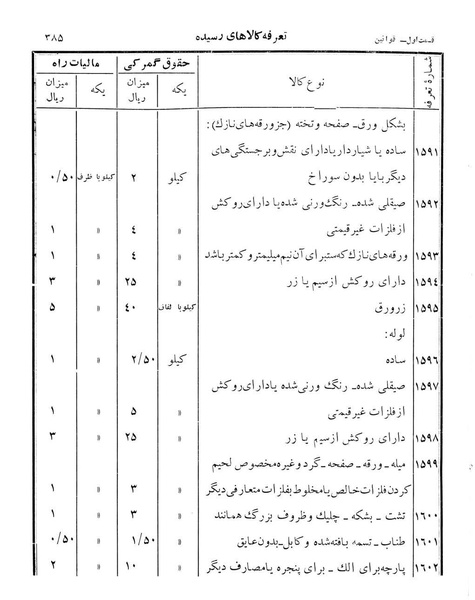 قسمت اول - قوانین تعرفه کالاهای رسیده ۳۸۵
شمارهٔ تعرفه نوع کالا حقوق گمرکی مالیات راه
یکه میزان ریال یکه میزان ریال
بشکل ورق - صفحه وتخته (جزورقه‌های نازک):
۱۵۹۱ ساده یا شیاردار یا دارای نقش و برجستگی‌های
دیگر با یا بدون سوراخ کیلو ۲ کیلو با ظرف ۰/۵۰
۱۵۹۲ صیقلی شده - رنگ ورنی شده یا دارای روکش
از فلزات غیرقیمتی » ٤ » ۱
۱۵۹۳ ورقه‌های نازک که ستبرای آن نیم میلیمتر و کمتر باشد » ٤ » ۱
۱۵۹٤ دارای روکش از سیم یا زر » ۲۵ » ۳
۱۵۹۵ زرورق کیلو با لفاف ٤۰ » ۵
لوله:
۱۵۹٦ ساده کیلو ۲/۵۰ » ۱
۱۵۹۷ صیقلی شده - رنگ ورنی شده یا دارای روکش
از فلزات غیرقیمتی » ۵ » ۱
۱۵۹۸ دارای روکش از سیم یا زر » ۲۵ » ۳
۱۵۹۹ میله - ورقه - صفحه - گرد و غیره مخصوص لحیم
کردن فلزات خالص یا مخلوط بفلزات متعارفی دیگر » ۳ » ۱
۱٦۰۰ تشت - بشکه - چلیک و ظروف بزرگ همانند » ۳ » ۱
۱٦۰۱ طناب - تسمه بافته شده و کابل - بدون عایق » ۱/۵۰ » ۰/۵۰
۱٦۰۲ پارچه برای الک - برای پنجره یا مصارف دیگر » ۱۰ » ۲